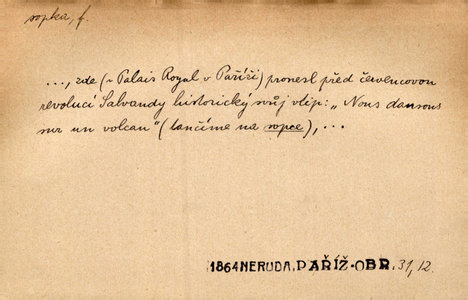 sopka, f.
..., zde (v Palais Royal v Paříži) pronesl před červencovou
revolucí Salvandy historický svůj vtip: „Nous dansons
sur un volcan“ (tančíme na sopce), ...
1864 NERUDA, PAŘÍŽ-OBR. 31, 12.